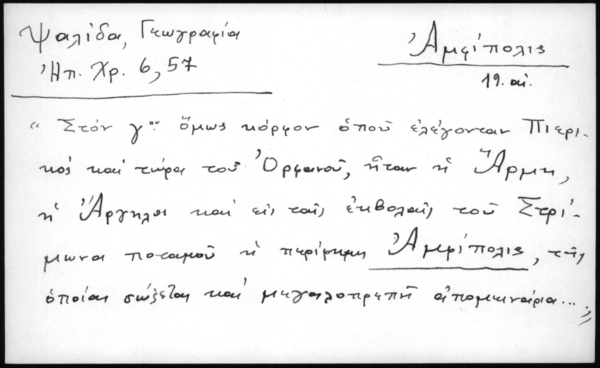 Ψαλίδα, Γεωγραφία
Ἠπ. Χρ. 6, 57
Ἀμφίπολις
19. αἰ.
“ Στόν γ ον ὅμως κόρφον ὁποῦ ἐλέγονταν Πιερι-
κός καί τώρα τοῦ Ὀρφανοῦ, ἦταν ἡ Ἄρμη,
ἡ Ἄργηλοι καί εἰς ταῖς ἐκβολαῖς τοῦ Στρί-
μωνα ποταμοῦ ἡ περίφημη Ἀμφίπολις, τῆς
ὁποίας σώζεται καί μεγαλοπρεπῆ ἀπομεινάρια... ”